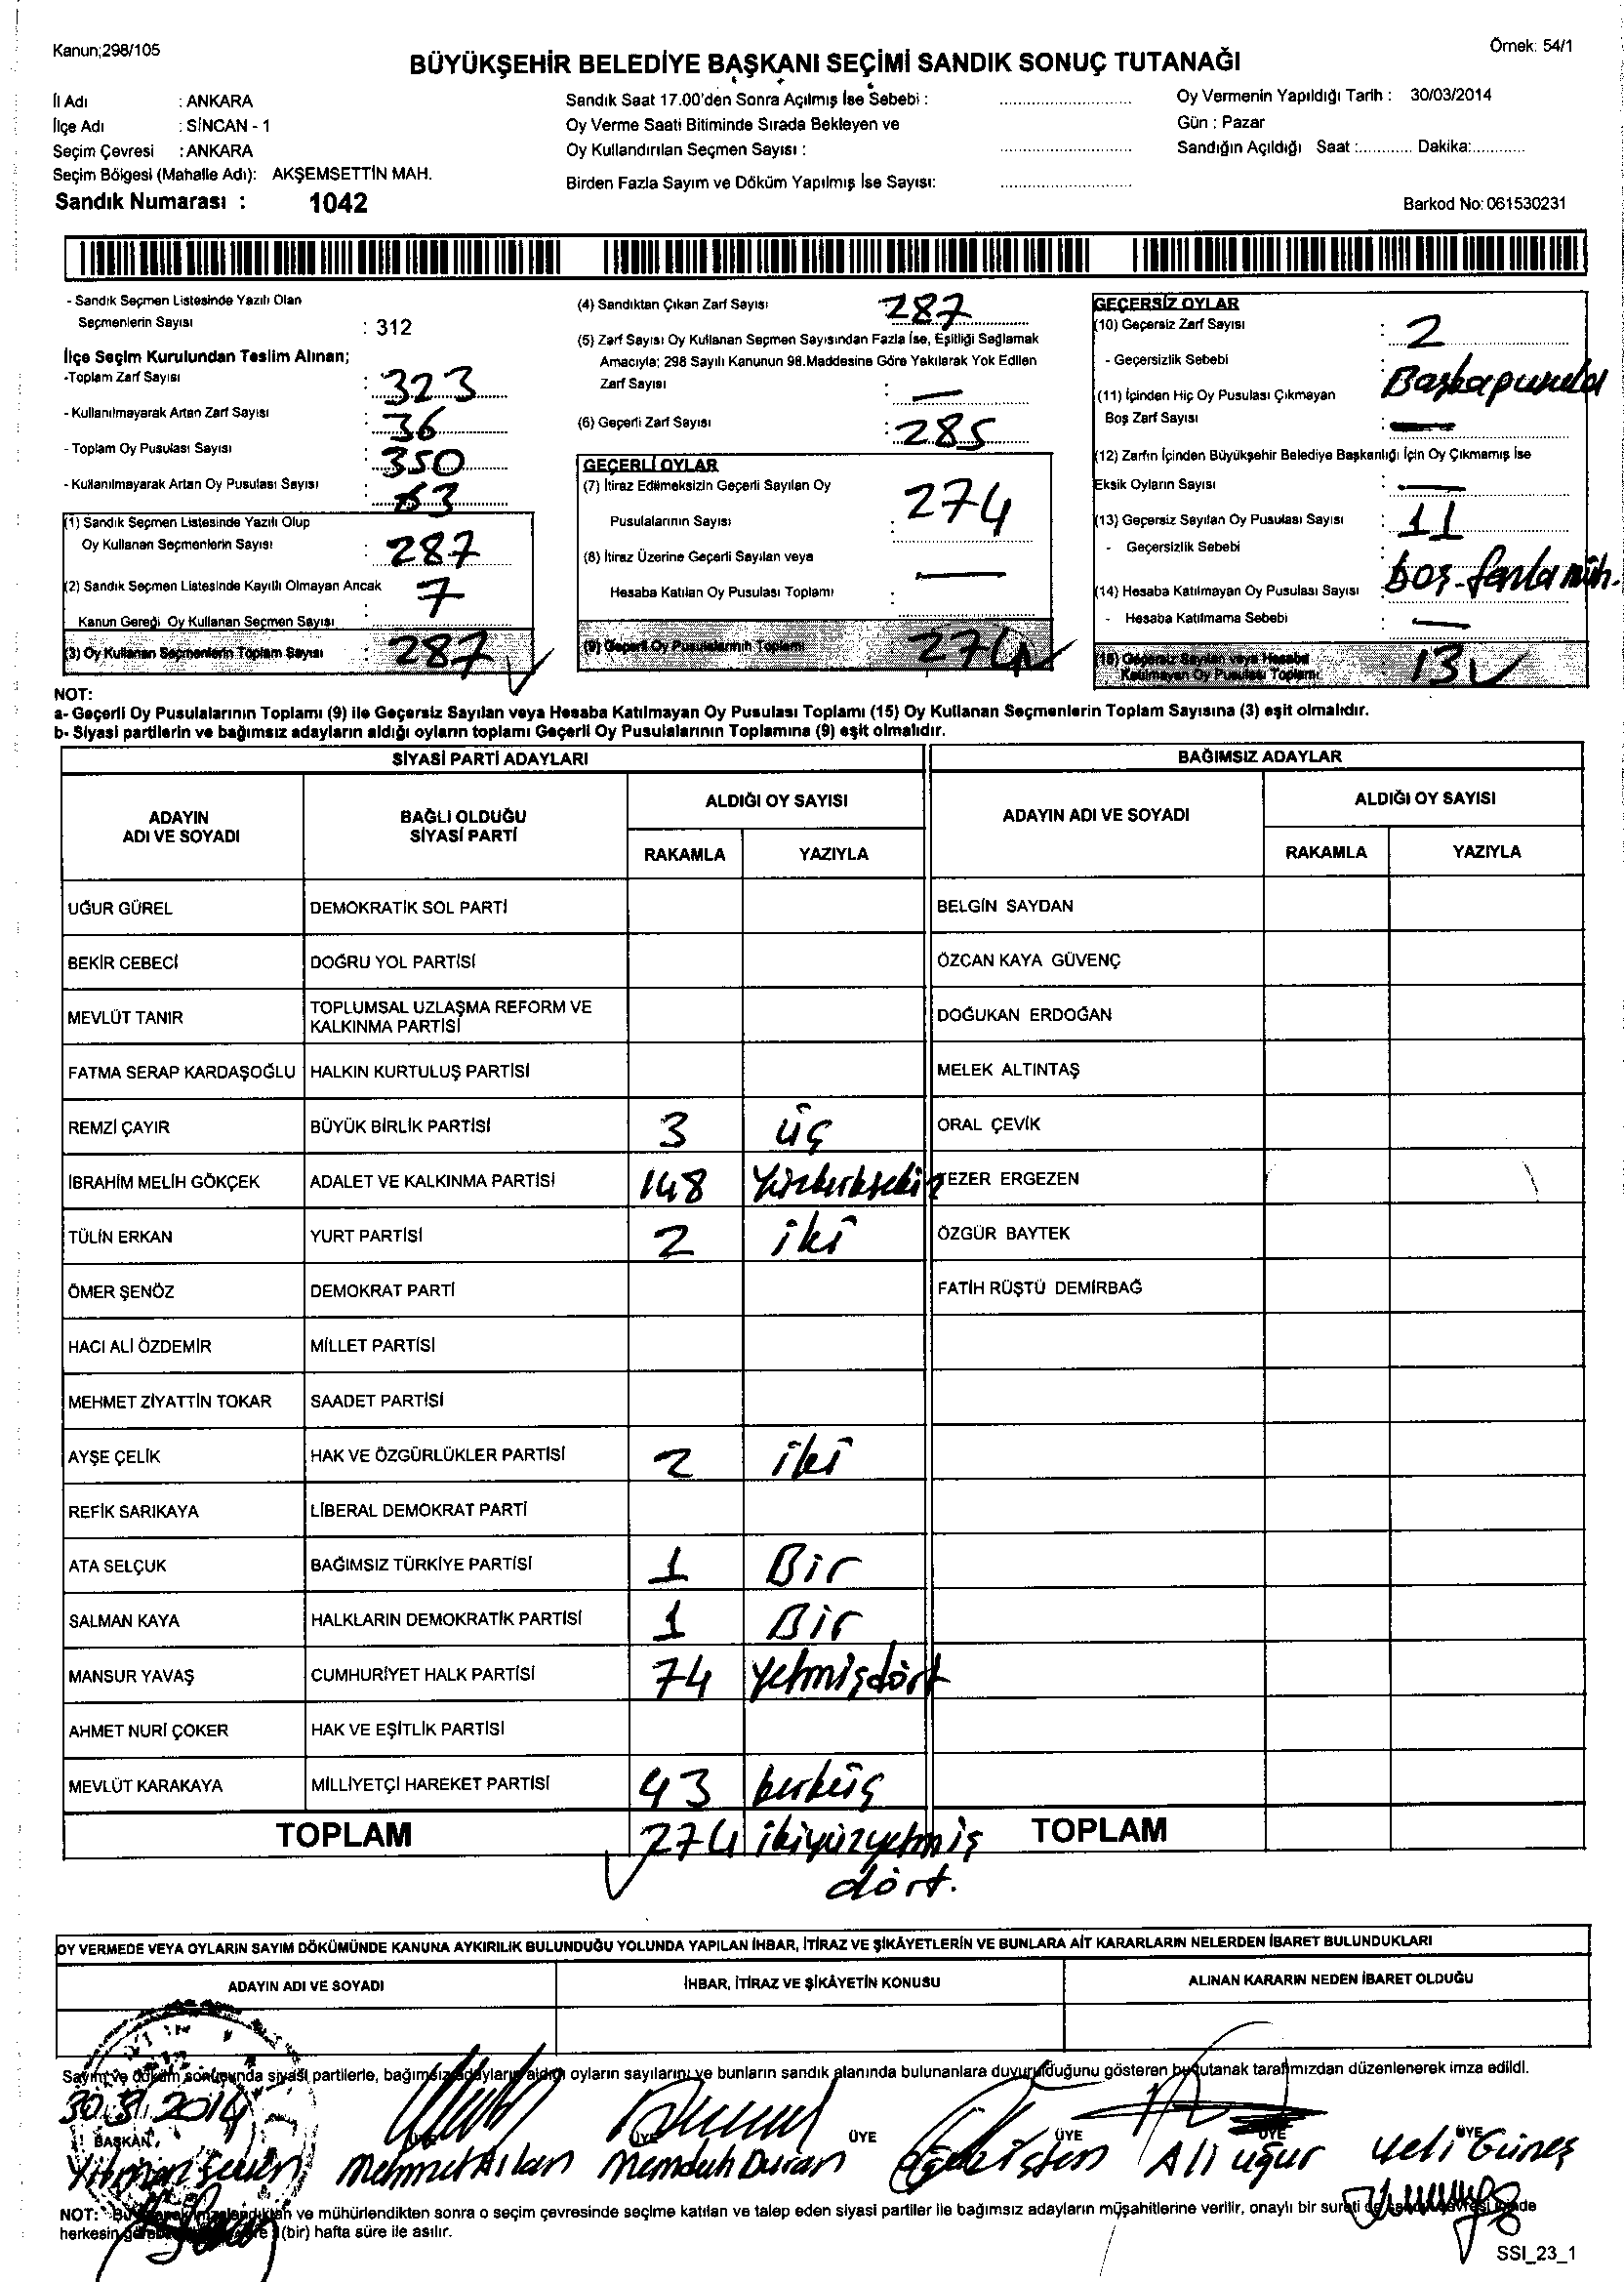 Kanun;298/105
Örnek: 54/1
BÜYÜKŞEHİR BELEDİYE BAŞKANI SEÇİMİ SANDIK SONUÇ TUTANAĞI
İl Adı : ANKARA
İlçe Adı : SİNCAN - 1
Seçim Çevresi : ANKARA
Seçim Bölgesi (Mahalle Adı): AKŞEMSETTİN MAH.
Sandık Numarası : 1042
Sandık Saat 17.00'den Sonra Açılmış İse Sebebi :
Oy Verme Saati Bitiminde Sırada Bekleyen ve
Oy Kullandırılan Seçmen Sayısı :
Birden Fazla Sayım ve Döküm Yapılmış İse Sayısı:
Oy Vermenin Yapıldığı Tarih : 30/03/2014
Gün : Pazar
Sandığın Açıldığı Saat :............ Dakika:............
Barkod No: 061530231
- Sandık Seçmen Listesinde Yazılı Olan
Seçmenlerin Sayısı : 312
İlçe Seçim Kurulundan Teslim Alınan;
-Toplam Zarf Sayısı : 323
- Kullanılmayarak Artan Zarf Sayısı : 36
- Toplam Oy Pusulası Sayısı : 350
- Kullanılmayarak Artan Oy Pusulası Sayısı : 63
(1) Sandık Seçmen Listesinde Yazılı Olup
Oy Kullanan Seçmenlerin Sayısı : 287
(2) Sandık Seçmen Listesinde Kayıtlı Olmayan Ancak
Kanun Gereği Oy Kullanan Seçmen Sayısı : 7
(3) Oy Kullanan Seçmenlerin Toplam Sayısı : 287
(4) Sandıktan Çıkan Zarf Sayısı 287
(5) Zarf Sayısı Oy Kullanan Seçmen Sayısından Fazla İse, Eşitliği Sağlamak
Amacıyla; 298 Sayılı Kanunun 98.Maddesine Göre Yakılarak Yok Edilen
Zarf Sayısı : —
(6) Geçerli Zarf Sayısı : 285
GEÇERLİ OYLAR
(7) İtiraz Edilmeksizin Geçerli Sayılan Oy
Pusulalarının Sayısı : 274
(8) İtiraz Üzerine Geçerli Sayılan veya
Hesaba Katılan Oy Pusulası Toplamı : —
(9) Geçerli Oy Pusulalarının Toplamı 274
GEÇERSİZ OYLAR
(10) Geçersiz Zarf Sayısı : 2
- Geçersizlik Sebebi : Başka pusula
(11) İçinden Hiç Oy Pusulası Çıkmayan
Boş Zarf Sayısı : —
(12) Zarfın İçinden Büyükşehir Belediye Başkanlığı İçin Oy Çıkmamış İse
Eksik Oyların Sayısı : —
(13) Geçersiz Sayılan Oy Pusulası Sayısı : 11
- Geçersizlik Sebebi : boş-fazla müh.
(14) Hesaba Katılmayan Oy Pusulası Sayısı
- Hesaba Katılmama Sebebi : —
(15) Geçersiz Sayılan veya Hesaba
Katılmayan Oy Pusulası Toplamı : 13
NOT:
a- Geçerli Oy Pusulalarının Toplamı (9) ile Geçersiz Sayılan veya Hesaba Katılmayan Oy Pusulası Toplamı (15) Oy Kullanan Seçmenlerin Toplam Sayısına (3) eşit olmalıdır.
b- Siyasi partilerin ve bağımsız adayların aldığı oyların toplamı Geçerli Oy Pusulalarının Toplamına (9) eşit olmalıdır.
SİYASİ PARTİ ADAYLARI
ADAYIN ADI VE SOYADI
BAĞLI OLDUĞU SİYASİ PARTİ
ALDIĞI OY SAYISI
RAKAMLA YAZIYLA
UĞUR GÜREL DEMOKRATİK SOL PARTİ
BEKİR CEBECİ DOĞRU YOL PARTİSİ
MEVLÜT TANIR TOPLUMSAL UZLAŞMA REFORM VE
KALKINMA PARTİSİ
FATMA SERAP KARDAŞOĞLU HALKIN KURTULUŞ PARTİSİ
REMZİ ÇAYIR BÜYÜK BİRLİK PARTİSİ 3 üç
İBRAHİM MELİH GÖKÇEK ADALET VE KALKINMA PARTİSİ 148 Yüzkırksekiz
TÜLİN ERKAN YURT PARTİSİ 2 iki
ÖMER ŞENÖZ DEMOKRAT PARTİ
HACI ALİ ÖZDEMİR MİLLET PARTİSİ
MEHMET ZİYATTİN TOKAR SAADET PARTİSİ
AYŞE ÇELİK HAK VE ÖZGÜRLÜKLER PARTİSİ 2 iki
REFİK SARIKAYA LİBERAL DEMOKRAT PARTİ
ATA SELÇUK BAĞIMSIZ TÜRKİYE PARTİSİ 1 Bir
SALMAN KAYA HALKLARIN DEMOKRATİK PARTİSİ 1 Bir
MANSUR YAVAŞ CUMHURİYET HALK PARTİSİ 74 Yetmişdört
AHMET NURİ ÇOKER HAK VE EŞİTLİK PARTİSİ
MEVLÜT KARAKAYA MİLLİYETÇİ HAREKET PARTİSİ 43 kırküç
TOPLAM 274 ikiyüzyetmiş
dört.
BAĞIMSIZ ADAYLAR
ADAYIN ADI VE SOYADI
ALDIĞI OY SAYISI
RAKAMLA YAZIYLA
BELGİN SAYDAN
ÖZCAN KAYA GÜVENÇ
DOĞUKAN ERDOĞAN
MELEK ALTINTAŞ
ORAL ÇEVİK
TEZER ERGEZEN
ÖZGÜR BAYTEK
FATİH RÜŞTÜ DEMİRBAĞ
TOPLAM
OY VERMEDE VEYA OYLARIN SAYIM DÖKÜMÜNDE KANUNA AYKIRILIK BULUNDUĞU YOLUNDA YAPILAN İHBAR, İTİRAZ VE ŞİKÂYETLERİN VE BUNLARA AİT KARARLARIN NELERDEN İBARET BULUNDUKLARI
ADAYIN ADI VE SOYADI
İHBAR, İTİRAZ VE ŞİKÂYETİN KONUSU
ALINAN KARARIN NEDEN İBARET OLDUĞU
Sayım ve döküm sonucunda siyasi partilerle, bağımsız adayların aldığı oyların sayılarını ve bunların sandık alanında bulunanlara duyurulduğunu gösteren bu tutanak tarafımızdan düzenlenerek imza edildi.
30.3.2014
BAŞKAN ÜYE ÜYE ÜYE ÜYE ÜYE ÜYE
Mehmet Aslan Memduh Duran Ali uğur Veli Güneş
NOT: ve mühürlendikten sonra o seçim çevresinde seçime katılan ve talep eden siyasi partiler ile bağımsız adayların müşahitlerine verilir, onaylı bir sureti
herkesin (bir) hafta süre ile asılır.
SSI_23_1